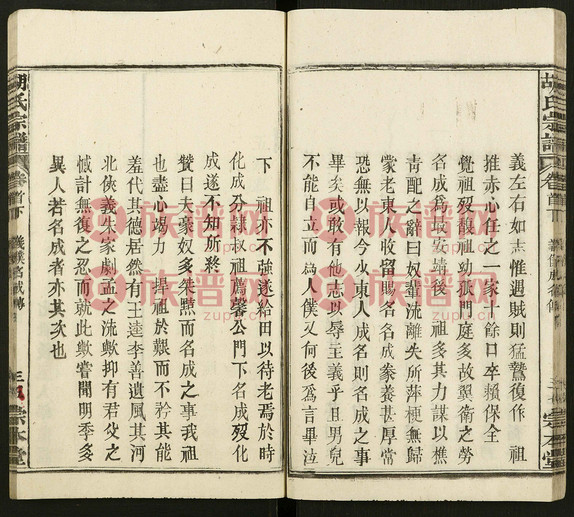 胡氏宗譜
卷首下
宗本堂
義左右如志惟遇賊則猛鷙復作　祖
推赤心任之一家　餘口卒賴保全
覺祖歿酸祖幼孤門庭多故翼衛之勞
名成爲最安靖後　祖經多其力謀以樵
青配之辭曰奴輩流離失所萍梗無歸
蒙老東人收留名成豢養甚厚常
恐無以報今少東人成名則名成之事
畢矣或敢有他志以辱主義乎且男兒
不能自立而為人僕又何後為言畢泣
下　祖亦不強遂給田以待老焉於時
化成分隸叔祖藹馨公門下名成歿化
成遂不知所終
贊曰夫豪奴多桀黠而名成之事我祖
也盡心竭力　捍祖於艱而不矜其能
羞代其德居然有王逵李善遺風其河
北俠義朱家劇孟之流歟抑有君父之
憾計無復之忍而就此歟嘗聞明季多
異人若名成者亦其次也
胡氏宗譜
卷首下
義僕名成傳
三
宗本堂
族譜网
zupu.cn